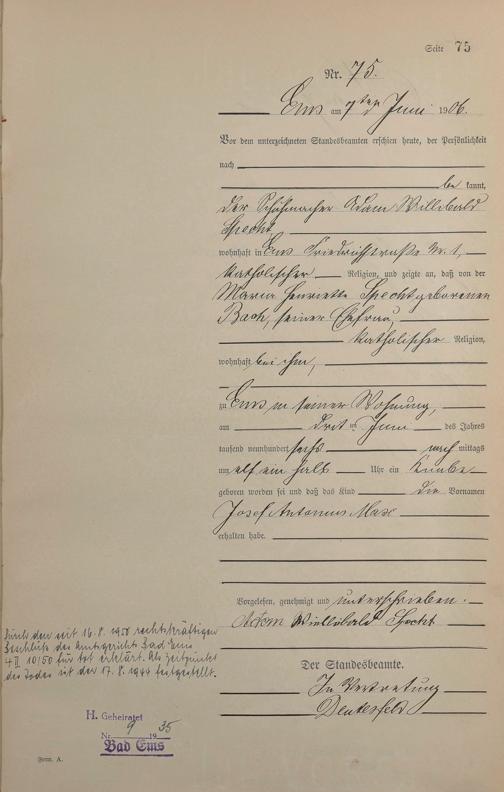 Seite 75
Nr. 75.
Ems am 7ten Juni 1906.
Vor dem unterzeichneten Standesbeamten erschien heute, der Persönlichkeit
nach
be kannt,
der Schuhmacher Adam Willibald
Specht,
wohnhaft in Ems Friedrichstraße Nr. 1,
katholischer Religion, und zeigte an, daß von der
Maria Henriette Specht geborenen
Bach, seiner Ehefrau,
katholischer Religion,
wohnhaft bei ihm,
zu Ems in seiner Wohnung,
am dritten Juni des Jahres
tausend neunhundert sechs nach mittags
um elf ein halb Uhr ein Knabe
geboren worden sei und daß das Kind die Vornamen
Josef Antonius Max
erhalten habe.
Vorgelesen, genehmigt und unterschrieben.
Adam Willibald Specht
Der Standesbeamte.
In Vertretung
Durch den seit 16.8.1950 rechtskräftigen
Beschluß des Amtsgerichts Bad Ems
4 II 10/50 für tot erklärt. Als Zeitpunkt
des Todes ist der 17.8.1944 festgestellt.
H. Geheiratet
Nr. 9 1935
Bad Ems
Form. A.